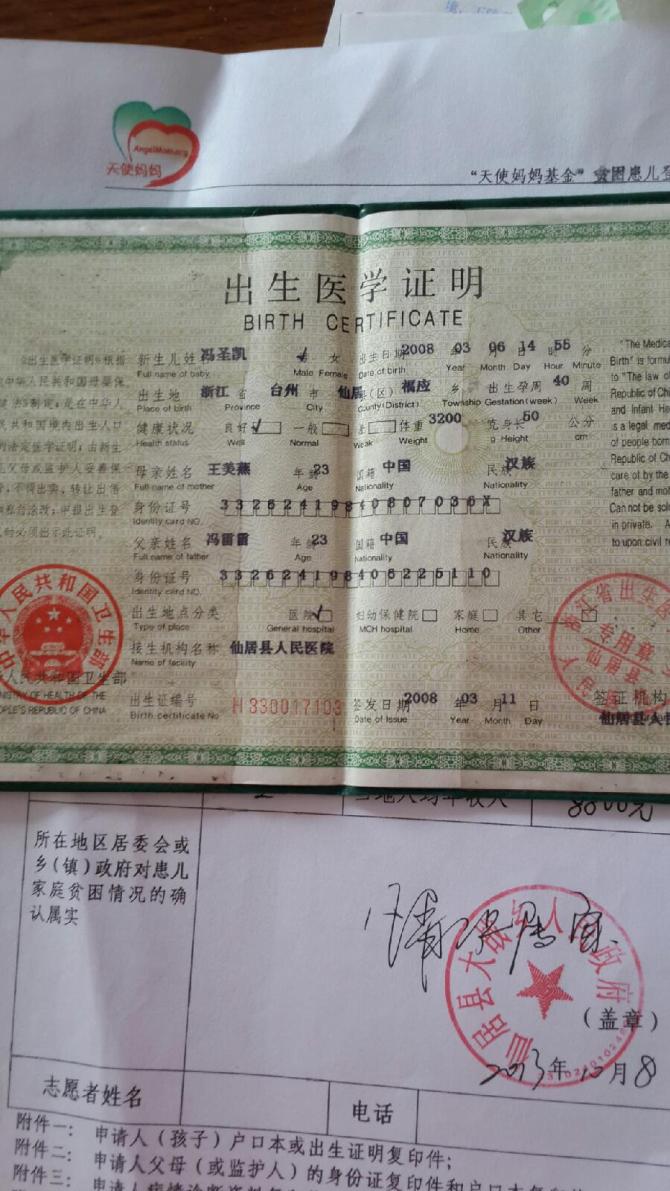 AngelMom.org
天使妈妈
“天使妈妈基金”贫困患儿登
出生医学证明
BIRTH CERTIFICATE
新生儿姓 冯圣凯 男 女 出生日期 2008 03 06 14 55 分
Full name of baby Male Female Date of birth Year Month Day Hour Minute
出生地 浙江 省 台州 市 仙居 (区) 福应 乡 出生孕周 40 周
Place of birth Province City County(District) Township Gestation(week) Week
健康状况 良好 一般 体重 3200 克 身长 50 公分
Health status Well Normal Weak Weight g Height cm
母亲姓名 王美燕 年龄 23 国籍 中国 民族 汉族
Full name of mother Age Nationality Nationality
身份证号
Identity card NO.
父亲姓名 冯雷雷 年龄 23 国籍 中国 民族 汉族
Full name of father Age Nationality Nationality
身份证号
Identity card NO.
出生地点分类 医院 妇幼保健院 家庭 其它
Type of place General hospital MCH hospital Home Other
接生机构名称 仙居县人民医院
Name of facility
出生证编号 H 330017103 签发日期 2008 年 03 月 11 日
Birth certificate No Date of Issue Year Month Day
《出生医学证明》根据
中华人民共和国母婴保
制定,是在中华人
民共和国境内出生人口
的法定医学证明,由新生
儿父母或监护人妥善保
不得出卖、转让出借
和私自涂改;申报出生登
时必须出示此证明.
中华人民共和国卫生部
人民共和国卫生部
MINISTRY OF HEALTH OF THE
PEOPLE'S REPUBLIC OF CHINA
"The Medica
Birth" is formu
to "The law of
Republic of Chi
and Infant He
is a legal med
of people born
Republic of Ch
care of by the
father and mot
Can not be sol
in private. A
to upon civil re
浙江省出生
专用章
仙居县
人民
签证机构
仙居县人民
8800元
所在地区居委会或
乡(镇)政府对患儿
家庭贫困情况的确
认属实
仙居县大战乡人民政府
(盖章)
2013年10月8
志愿者姓名
电话
附件一: 申请人(孩子)户口本或出生证明复印件;
附件二: 申请人父母(或监护人)的身份证复印件和户口本复印
附件三: